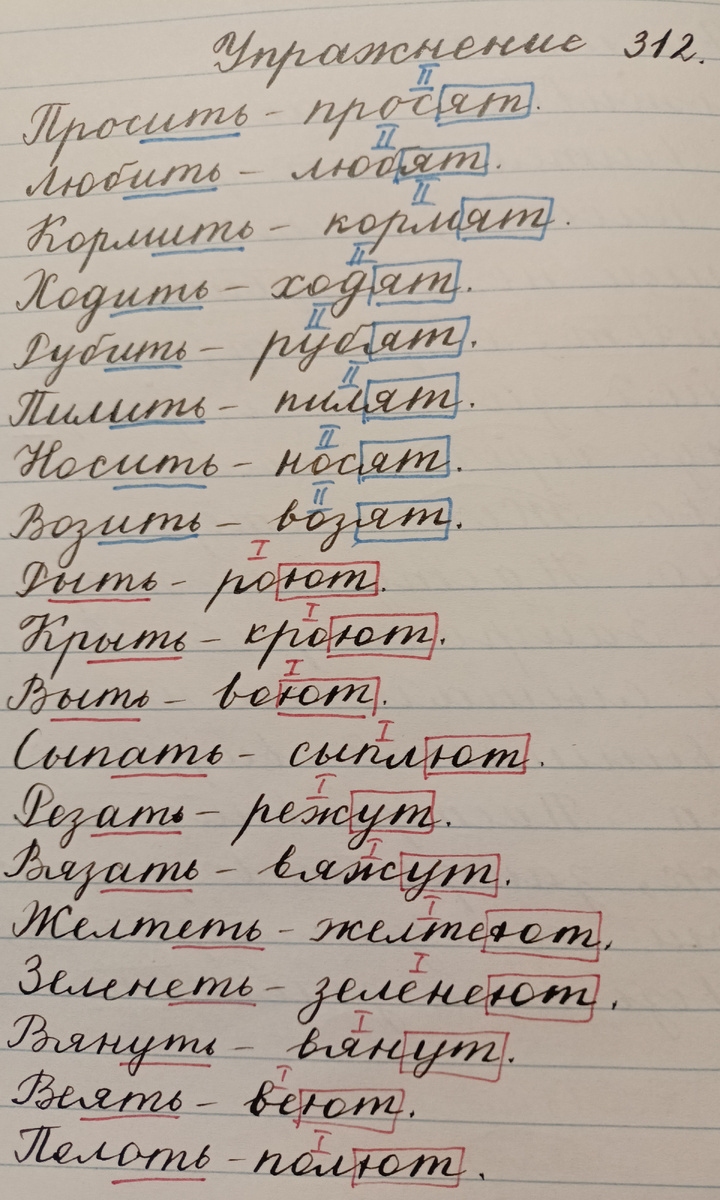 Упражнение 312.
II
Просить - просят.
II
Любить - любят.
II
Кормить - кормят.
II
Ходить - ходят.
II
Рубить - рубят.
II
Пилить - пилят.
II
Носить - носят.
II
Возить - возят.
I
Рыть - роют.
I
Крыть - кроют.
I
Выть - воют.
I
Сыпать - сыплют.
I
Резать - режут.
I
Вязать - вяжут.
I
Желтеть - желтеют.
I
Зеленеть - зеленеют.
I
Вянуть - вянут.
I
Веять - веют.
I
Полоть - полют.